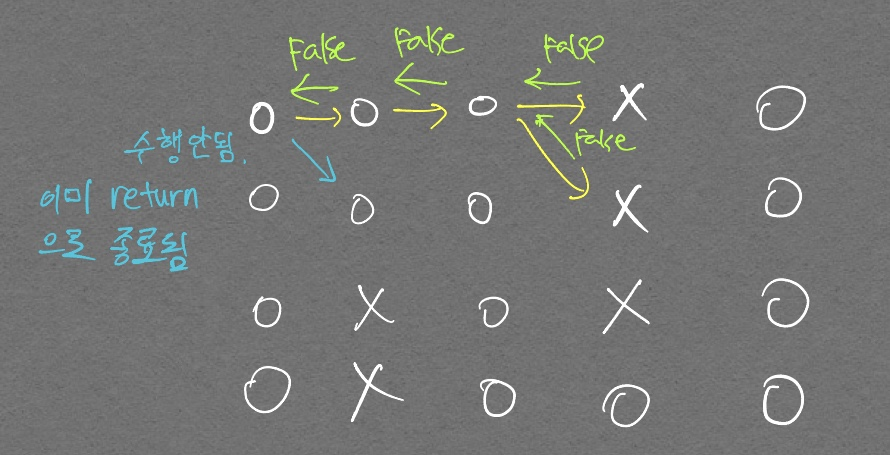 False False False
O O O X O
False
수행안됨.
이미 return
으로 종료됨
O O O X O
O X O X O
O X O O O